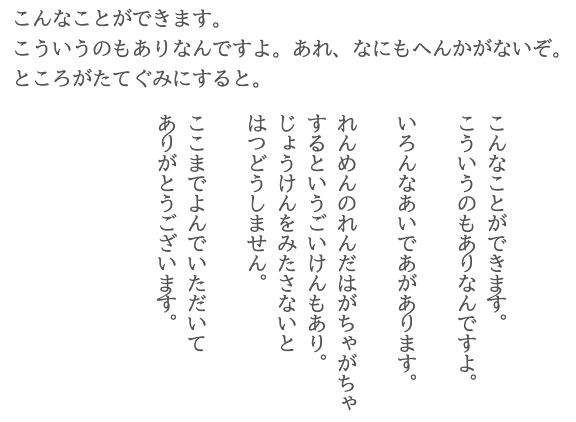 こんなことができます。
こういうのもありなんですよ。あれ、なにもへんかがないぞ。
ところがたてぐみにすると。
こんなことができます。
こういうのもありなんですよ。
いろんなあいであがあります。
れんめんのれんだはがちゃがちゃ
するというごいけんもあり。
じょうけんをみたさないと
はつどうしません。
ここまでよんでいただいて
ありがとうございます。